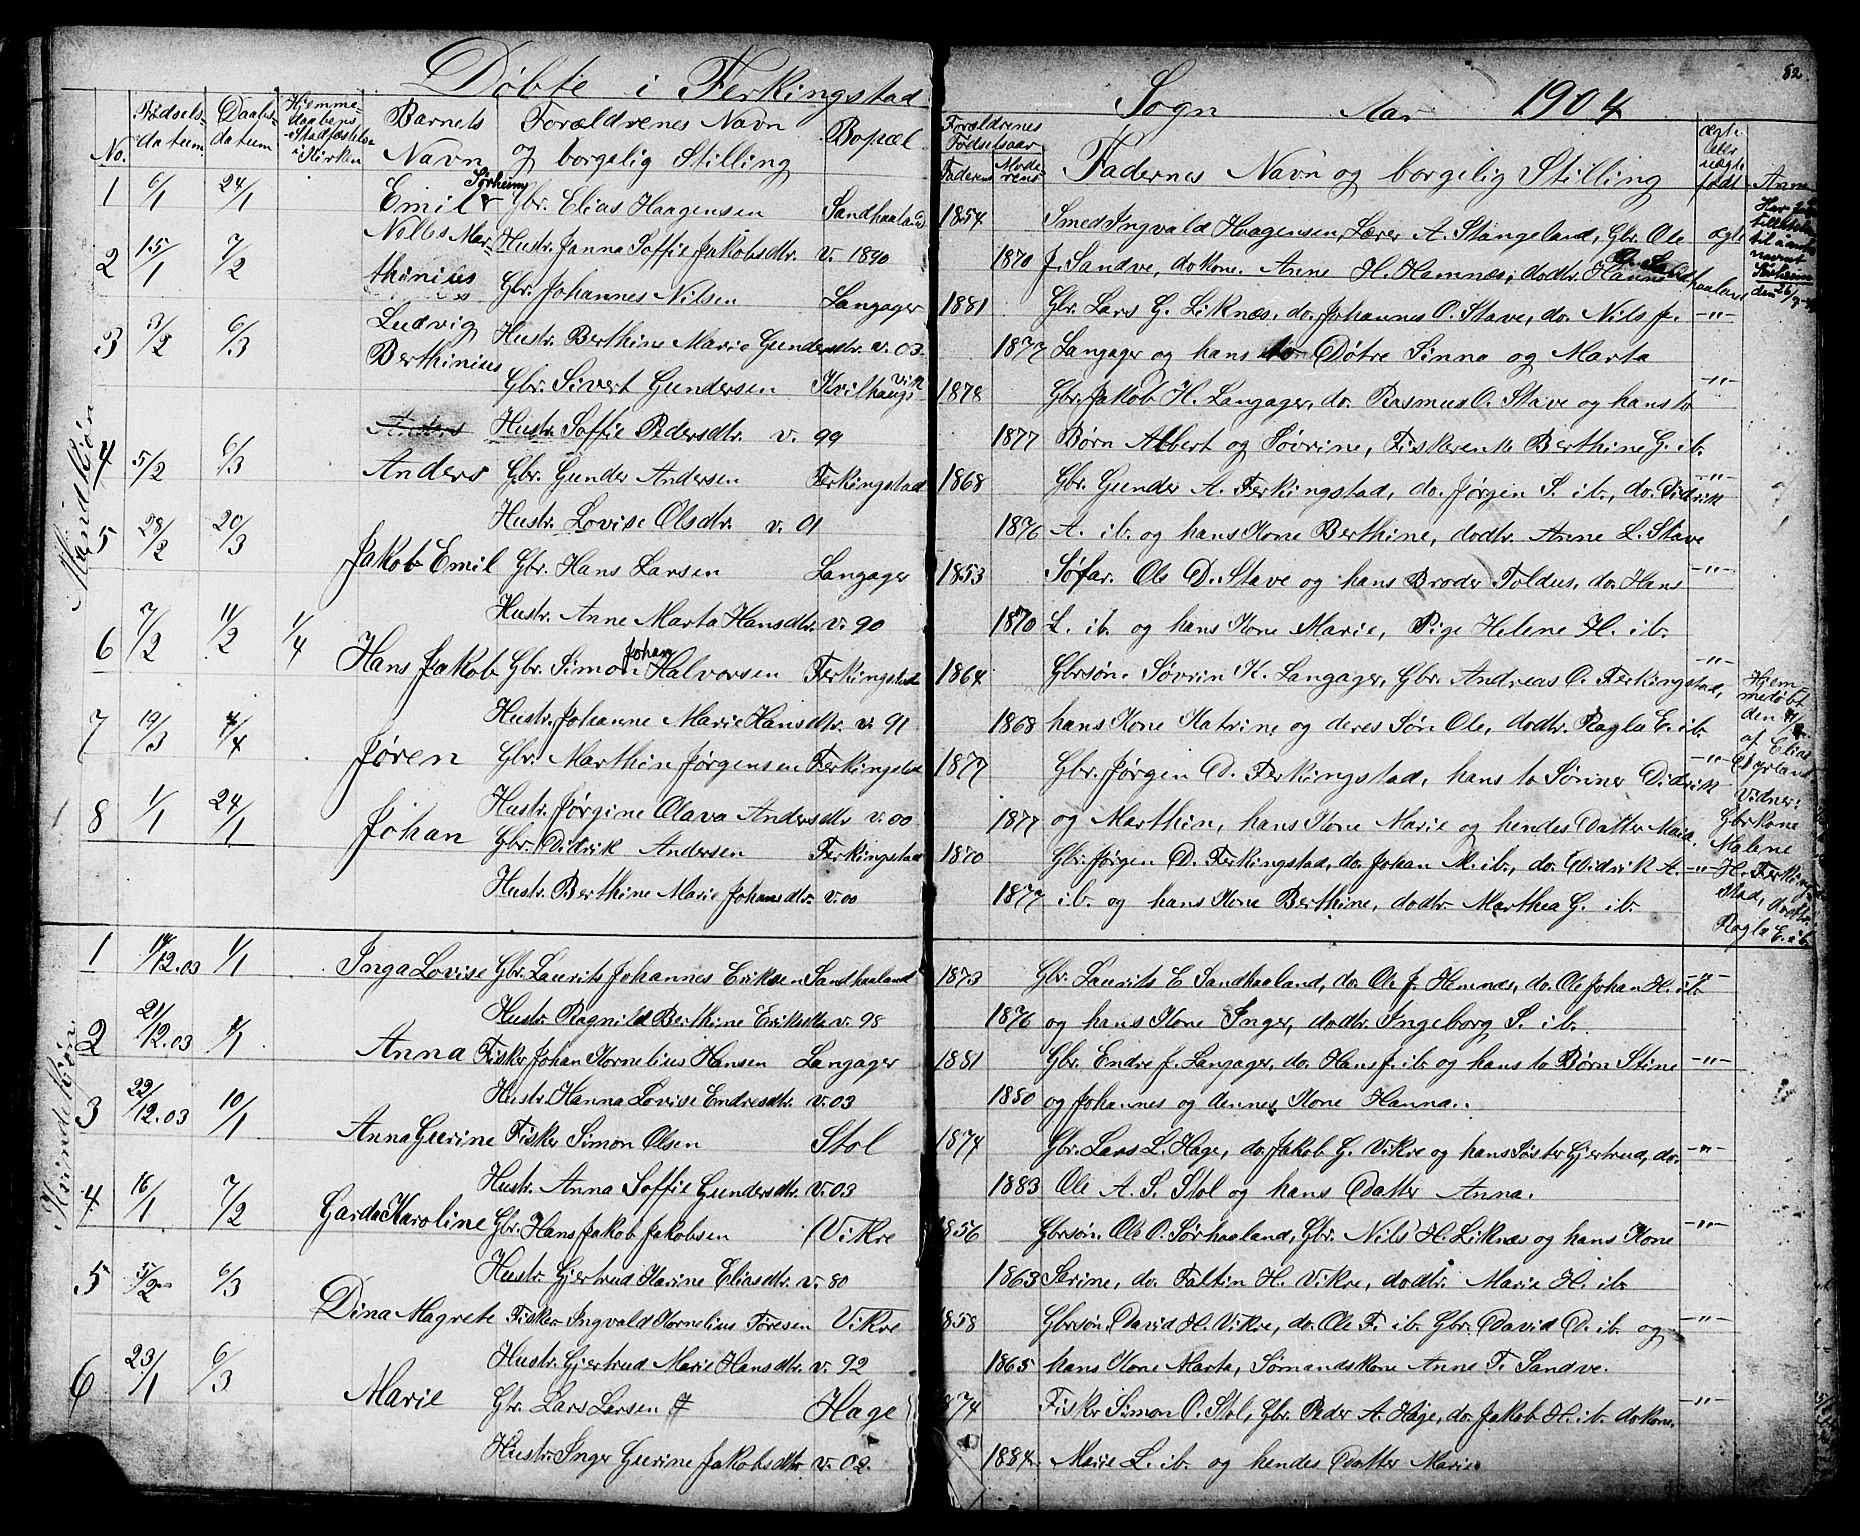 82.
Døbte i Ferkingstad Sogn Aar 1904
No. Fødselsdatum Daabsdatum Hjemmedaabens Stadfæstelse i Kirken Barnets Navn Forældrenes Navn og borgelig Stilling Bopæl Forældrenes Fødselsaar Faderens Moderens Fadernes Navn og borgelig Stilling ægte eller uægte født Anm
Mandkjøn
1 6/1 24/1 Emil Sørheim Gbr. Elias Haagensen Sandhaaland 1854 Smed Ingvald Haagensen, Lærer A. Stangeland, Gbr. Ole ægte
Hustr. Janna Soffie Jakobsdtr. v. 1890 1870 J. Sandve, do Kone Anne H. Hemnæs, dodtr. Hanna
2 15/1 7/2 Nolles Marthinius Gbr. Johannes Nilsen Langager 1881 Gbr. Lars G. Liknæs, do. Johannes O. Stave, do. Nils J. -"-
Hustr. Berthine Marie Gundersdtr. v. 03 1877 Langager og hans to Døtre Sinna og Marta
3 3/2 6/3 Ludvig Berthinius Gbr. Sivert Gundersen Kvilhaugsvik 1878 Gbr. Jakob H. Langager, do. Rasmus O. Stave og hans to -"-
Anders Hustr. Soffie Pedersdtr. v. 99 1877 Børn Albert og Søvrine, Fiskerenke Berthine G. ib.
4 5/2 6/3 Anders Gbr. Gunder Andersen Ferkingstad 1868 Gbr. Gunder A. Ferkingstad, do. Jørgen S. ib., do. Didrik -"-
Hustr. Lovise Olsdtr. v. 01 1876 A. ib. og hans Kone Berthine, dodtr. Anne L. Stave
5 28/2 20/3 Jakob Emil Gbr. Hans Larsen Langager 1853 Søfar. Ole D. Stave og hans Broder Toldus, do. Hans -"-
Hustr. Anne Marta Hansdtr. v. 90 1870 L. ib. og hans Kone Marie, Pige Helene H. ib.
6 7/2 11/2 1/4 Hans Jakob Gbr. Simon Johan Halvorsen Ferkingstad 1864 Gbrsøn. Søvrin K. Langager, Gbr. Andreas O. Ferkingstad, -"-
Hustr. Johanne Marie Hansdtr. v. 91 1868 hans Kone Katrine og deres Søn Ole, dodtr. Ragla E. ib.
7 19/3 4/4 Jøren Gbr. Marthin Jørgensen Ferkingstad 1877 Gbr. Jørgen D. Ferkingstad, hans to Sønner Didrik -"-
Hustr. Jørgine Olava Andersdtr v. 00 1877 og Marthin, hans Kone Marie og hendes Datter Maria.
8 1/1 24/1 Johan Gbr. Didrik Andersen Ferkingstad 1870 Gbr. Jørgen D. Ferkingstad, do. Johan M. ib., do. Didrik A. -"-
Hustr. Berthine Marie Johansdtr. v. 00 1877 ib. og hans Kone Berthine, dodtr. Marthea G. ib.
til a
navnet
Sørheim
den 26/9
Hjemmedøbt
den
af Elias
Vidner:
Gbrkone
Malene
H. Ferkingstad, dodtr.
Ragla E. ib.
Kvindekjøn.
1 12.03 1/1 Inga Lovise Gbr. Laurits Johannes Eriksen Sandhaaland 1873 Gbr. Laurits E Sandhaaland, do. Ole J. Hemnæs, do. Ole Johan H. ib. -"-
Hustr. Ragnild Berthine Eriksdtr. v. 98 1876 og hans Kone Inger, dodtr. Ingeborg S. ib.
2 21/12.03 1/1 Anna Fisker Johan Kornelius Hansen Langager 1881 Gbr. Endre J. Langager, do. Hans J. ib. og hans to Børn Stine -"-
Hustr. Hanna Lovise Endresdtr. v. 03 1880 og Johannes og dennes Kone Hanna.
3 22/12.03 10/1 Anna Gurine Fisker Simon Olsen Stol 1874 Gbr. Lars L. Hage, do. Jakob G. Vikre og hans Søster Gjertrud, do. -"-
Hustr. Anna Soffie Gundersdtr. v. 03 1883 Ole A. S. Stol og hans Datter Anna.
4 16/1 7/2 Garda Karoline Gbr. Hans Jakob Jakobsen Vikre 1856 Gbrsøn. Ole O. Sørhaaland, Gbr. Nils H. Liknæs og hans Kone -"-
Hustr. Gjertrud Karine Eliasdtr. v. 80 1863 Serine, do. Faltin H. Vikre, dodtr. Marie H. ib.
5 5/2 6/3 Dina Magrete Fisker Ingvald Kornelius Toresen Vikre 1858 Gbrsøn David H. Vikre, do. Ole F. ib. Gbr. David D. ib. og -"-
Hustr. Gjertrud Marie Hansdtr. v. 92 1865 hans Kone Marta, Sømandskone Anne T. Sandve.
6 23/1 6/3 Marie Gbr. Lars Larsen Hage 1874 Fisker Simon O. Stol, Gbr. Peder A. Hage, do. Jakob H. ib. do Kone. -"-
Hustr. Inger Gurine Jakobsdtr v. 02. 1884. Marie L. ib. og hendes Datter Marie